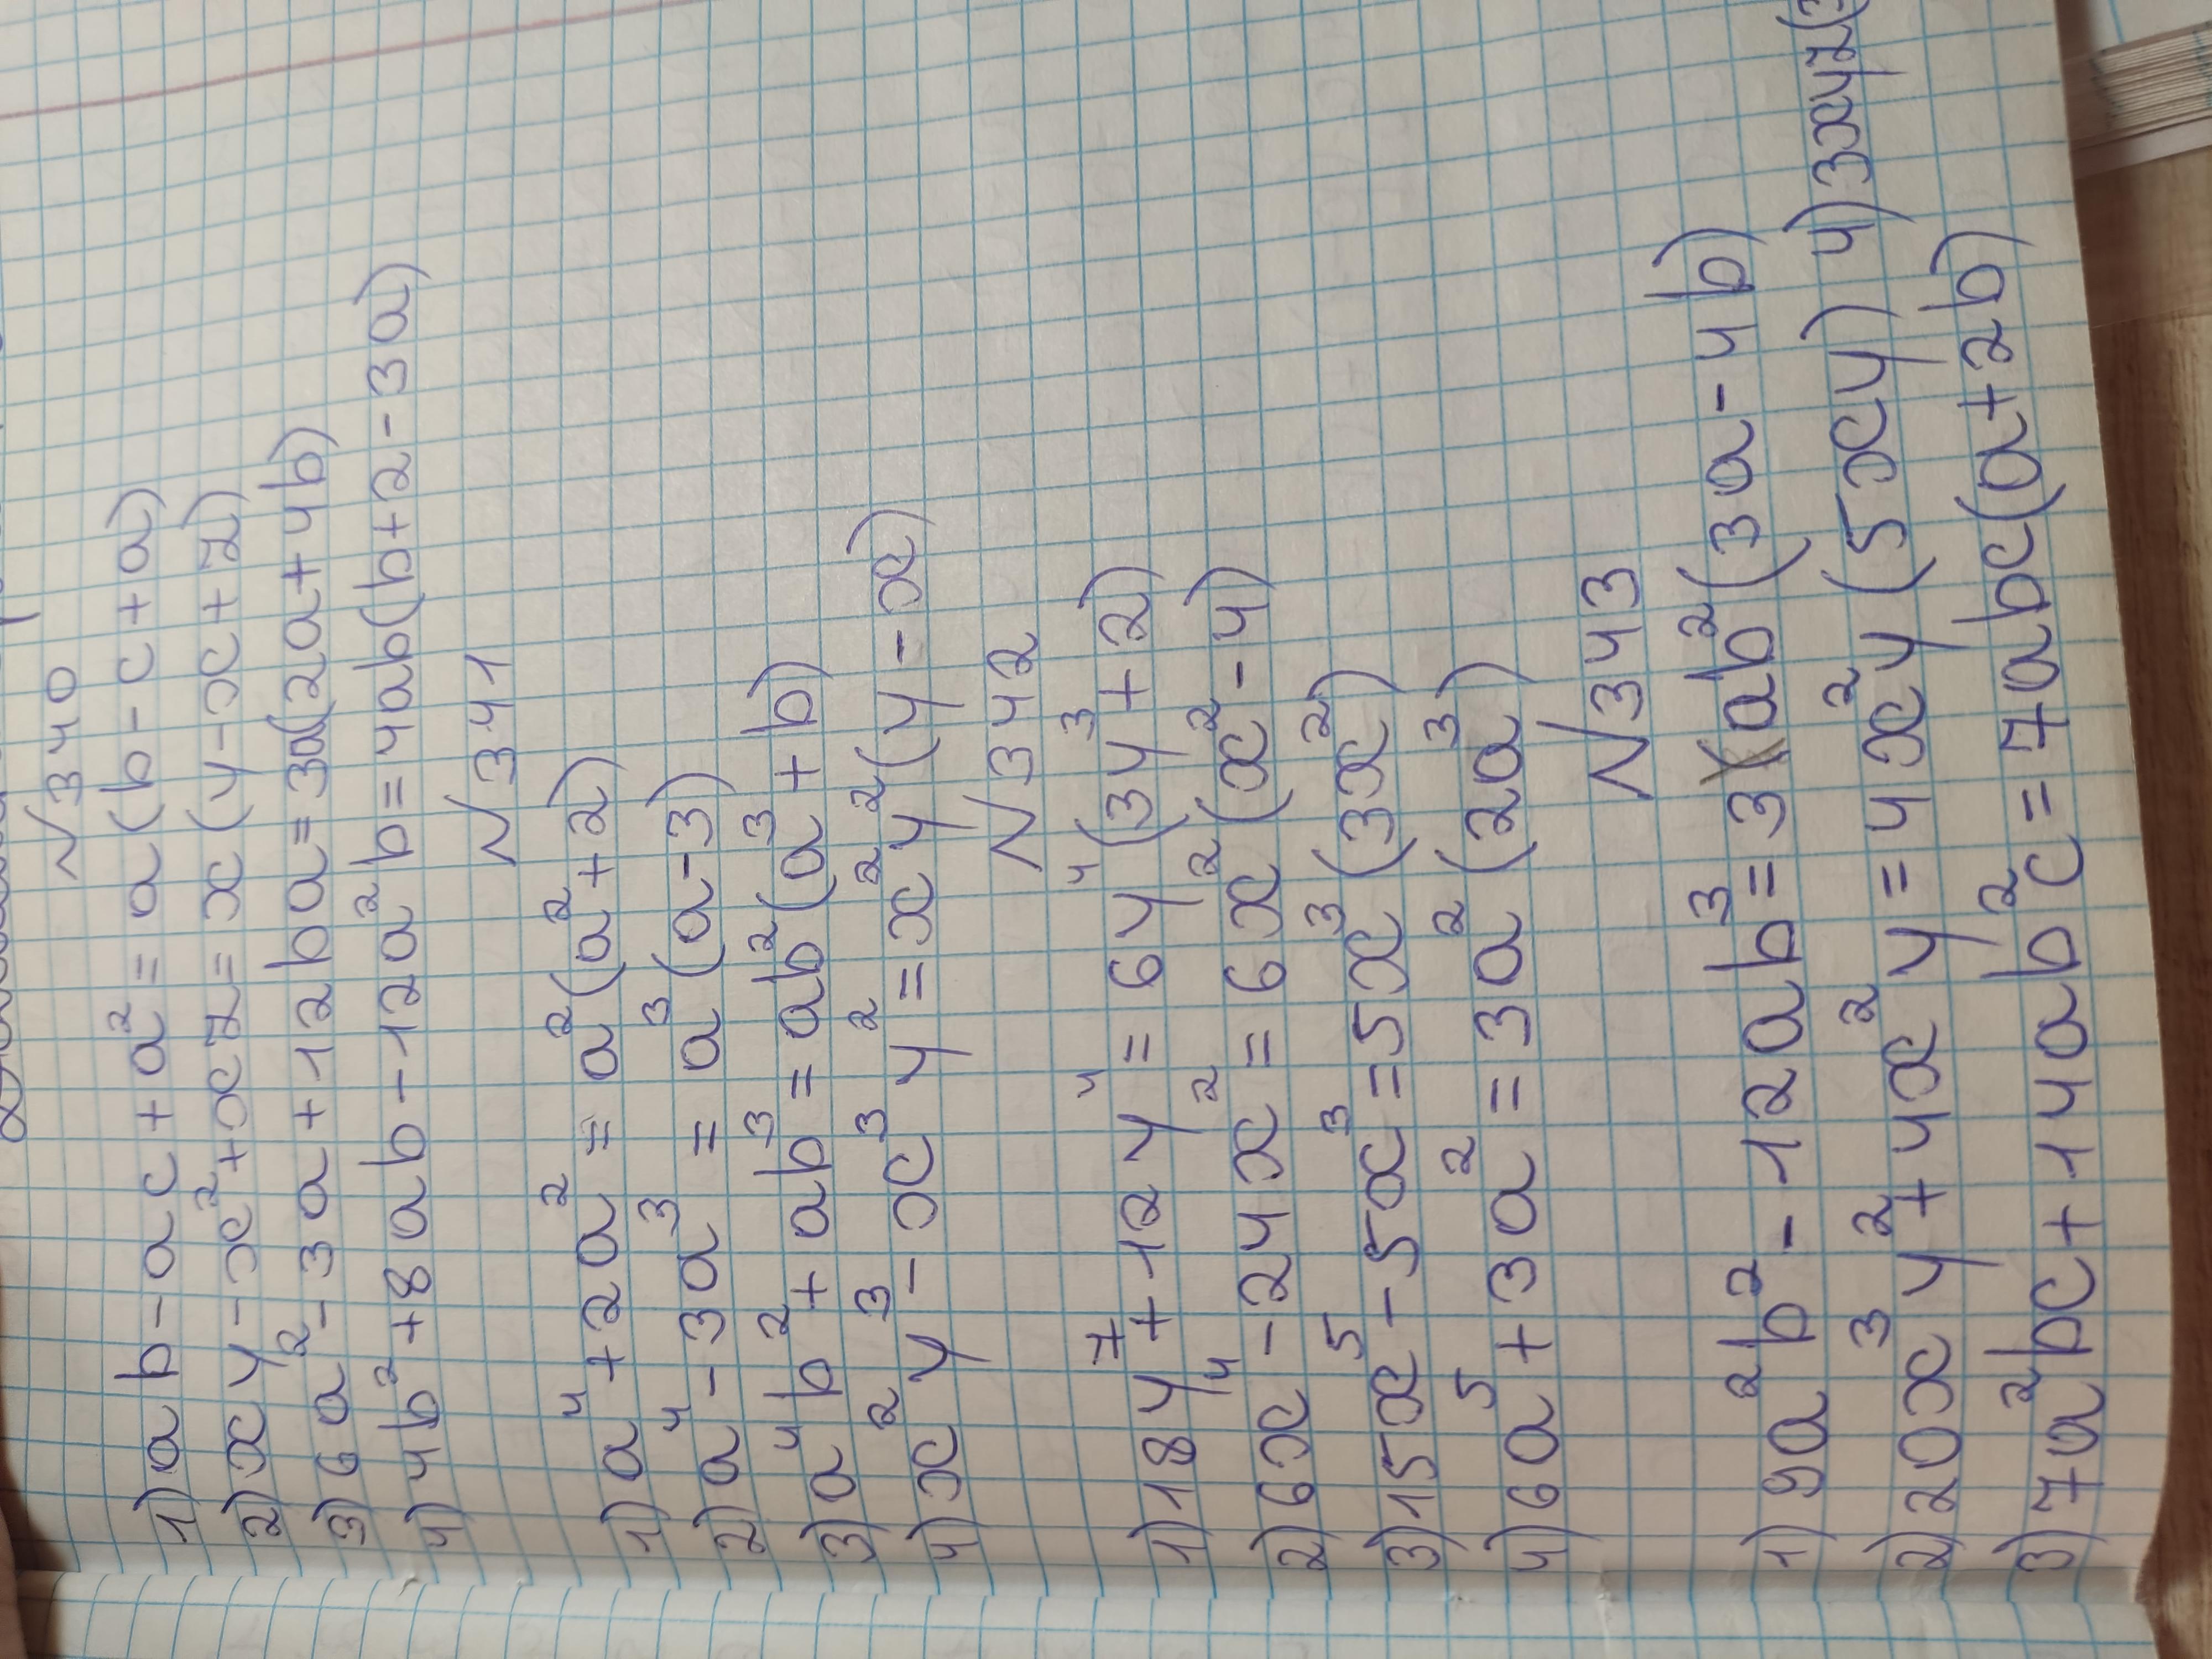 N340
1) ab-ac+a²=a(b-c+a)
2) xy-x²+xz=x(y-x+z)
3) 6a²-3a+12ba=3a(2a+4b)
4) 4b²+8ab-12a²b=4ab(b+2-3a)
N341
1) a⁴+2a²=a²(a²+2)
2) a⁴-3a³=a³(a-3)
3) a⁴b²+ab³=ab²(a³+b)
4) x²y³-x³y²=x²y²(y-x)
N342
1) 18y⁷+12y⁴=6y⁴(3y³+2)
2) 6x⁴-24x²=6x²(x²-4)
3) 15x⁵-5x³=5x³(3x²)
4) 6a⁵+3a²=3a²(2a³)
N343
1) 9a²b²-12ab³=3ab²(3a-4b)
2) 20x³y²+4x²y=4x²y(5xy) 4) 3xyz(3
3) 7a²bc+14ab²c=7abc(a+2b)